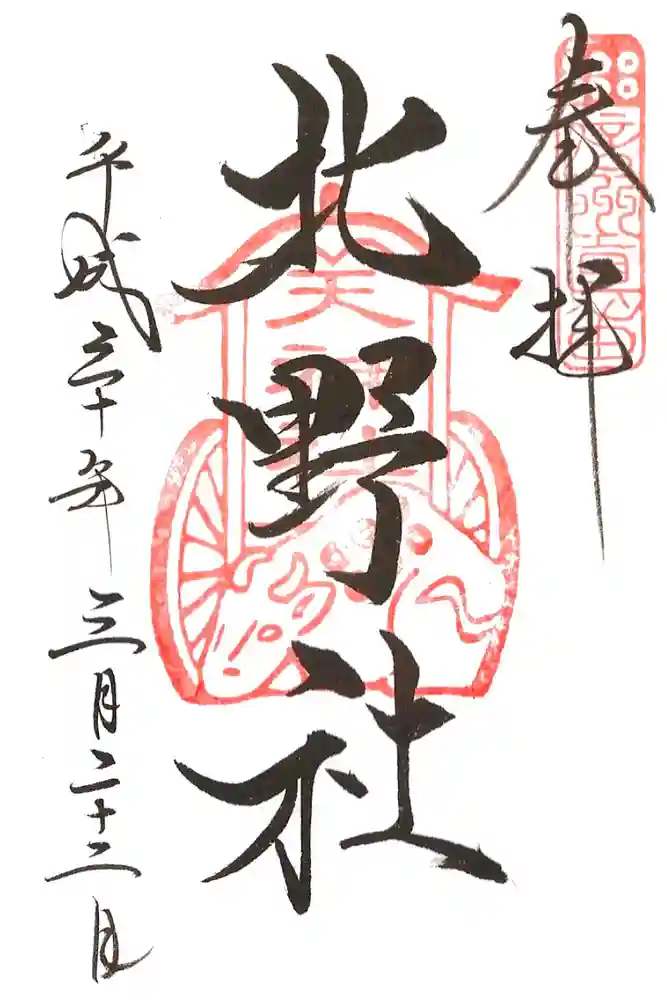 奉拝
北野社
平成三十年三月二十二日